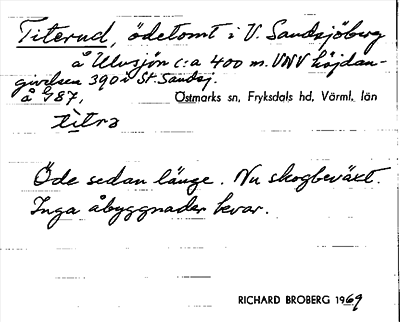 Titerud, ödetomt i V. Sandsjöberg
å Ulvsjön c:a 400 m. VNV höjdan-
givelsen 390 i St. Sandsj.
å G 87,
Östmarks sn, Fryksdals hd, Värml. län
titrə
Öde sedan länge. Nu skogbeväxt.
Inga åbyggnader kvar.
RICHARD BROBERG 1969